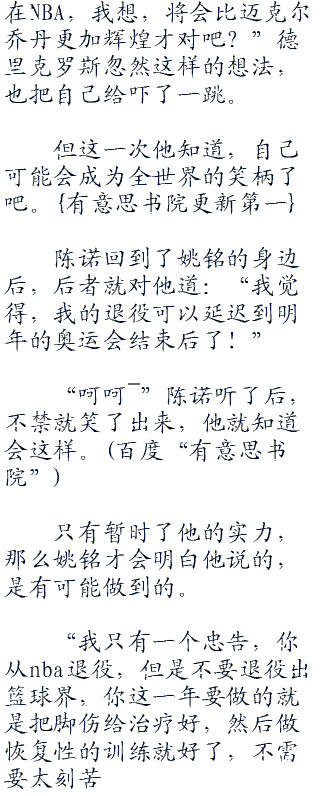 在NBA，我想，将会比迈克尔
乔丹更加辉煌才对吧？”德
里克罗斯忽然这样的想法，
也把自己给吓了一跳。
但这一次他知道，自己
可能会成为全世界的笑柄了
吧。{有意思书院更新第一}
陈诺回到了姚铭的身边
后，后者就对他道：“我觉
得，我的退役可以延迟到明
年的奥运会结束后了！”
“呵呵¯”陈诺听了后，
不禁就笑了出来，他就知道
会这样。(百度“有意思书
院”)
只有暂时了他的实力，
那么姚铭才会明白他说的，
是有可能做到的。
“我只有一个忠告，你
从nba退役，但是不要退役出
篮球界，你这一年要做的就
是把脚伤给治疗好，然后做
恢复性的训练就好了，不需
要太刻苦